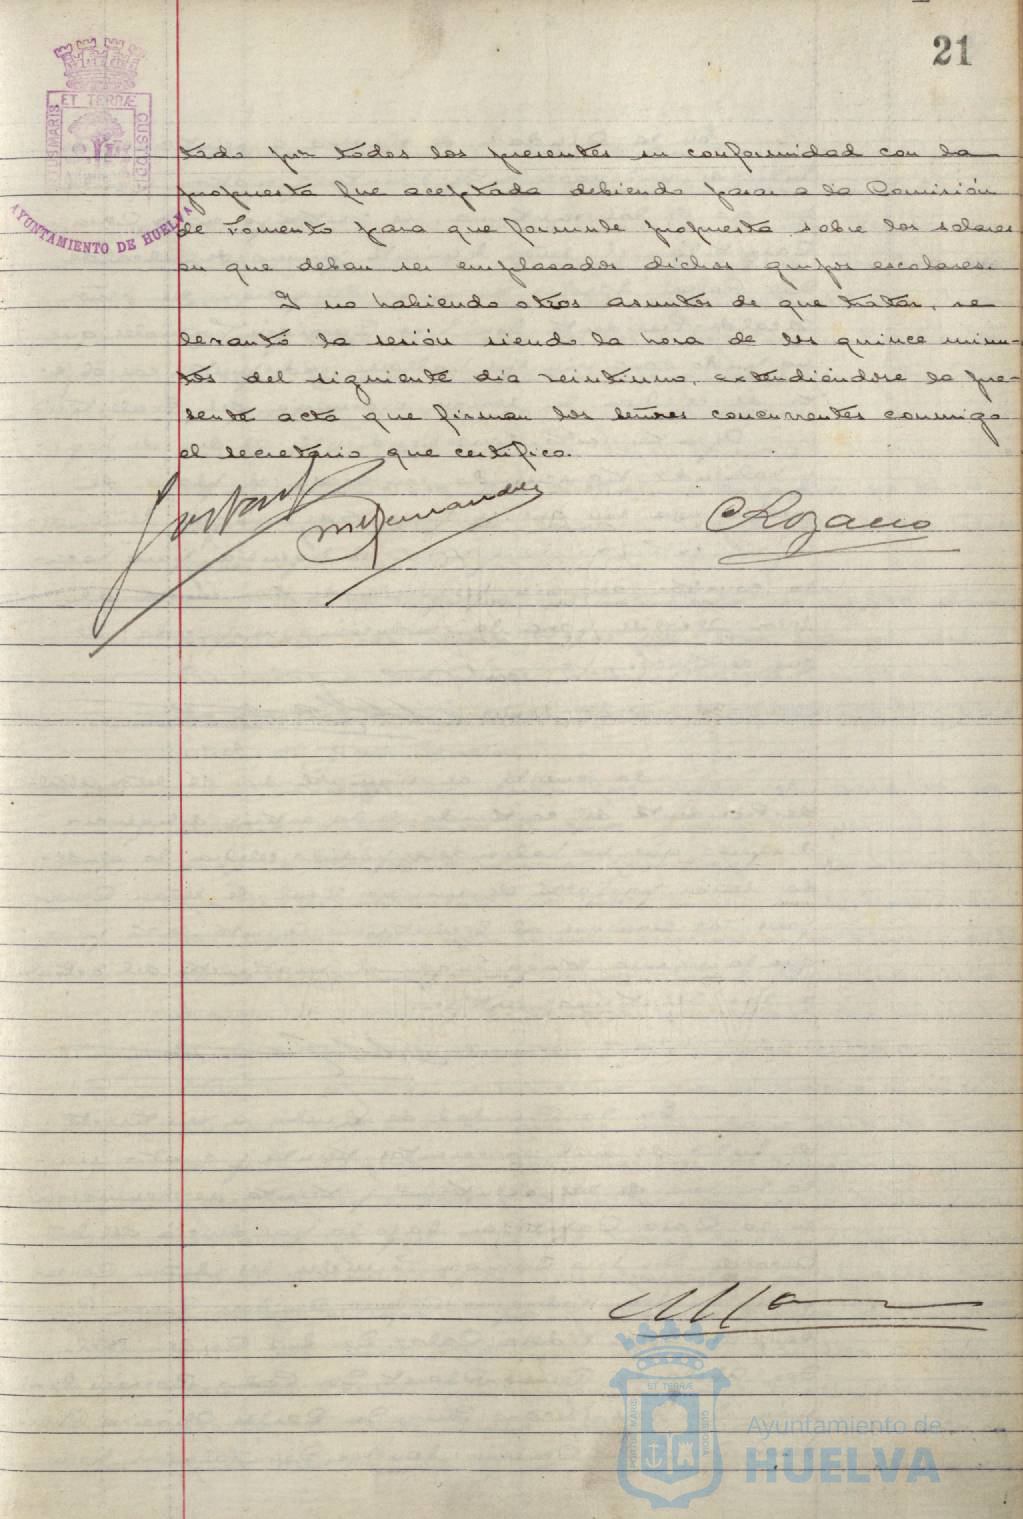 21
ET TERRÆ
CUSTODIA
AYUNTAMIENTO DE HUELVA
tado por todos los presentes su conformidad con la
propuesta fue aceptada debiendo pasar a la Comisión
de Fomento para que formule propuesta sobre los solares
en que deban ser emplasados dichos grupos escolares.
Y no habiendo otros asuntos de que tratar, se
levantó la sesión siendo la hora de los quince minu-
tos del siguiente dia veintiuno, extendiéndose la pre-
sente acta que firman los señores concurrentes conmigo
el secretario que certifico.
MHernandez
CRozano
PORTUS MARIS
ET TERRÆ
CUSTODIA
Ayuntamiento de
HUELVA